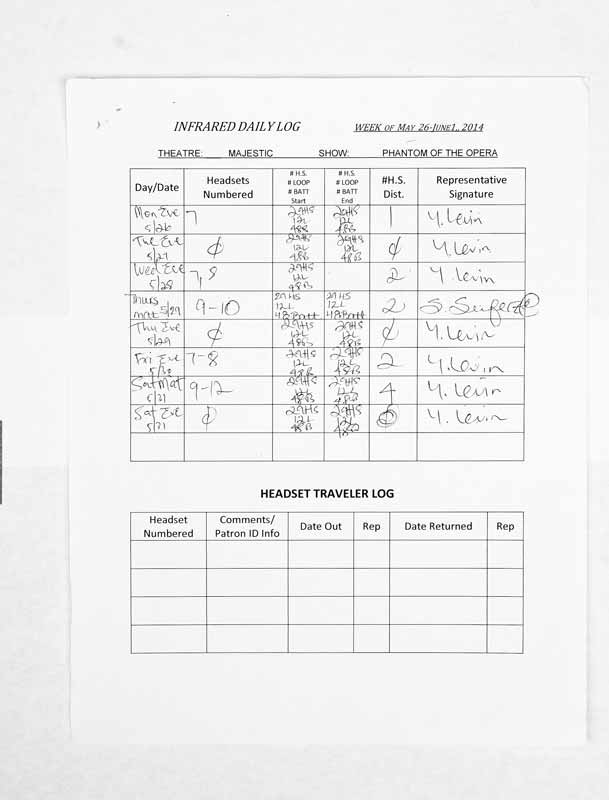 INFRARED DAILY LOG WEEK OF MAY 26-JUNE1,, 2014
THEATRE: MAJESTIC SHOW: PHANTOM OF THE OPERA
Day/Date Headsets Numbered # H.S. # LOOP # BATT Start # H.S. # LOOP # BATT End #H.S. Dist. Representative Signature
Mon Eve 5/26 7 29HS 12L 48B 29HS 12L 48B 1 Y. Levin
Tue Eve 5/27 0 29HS 12L 48B 29HS 12L 48B 0 Y. Levin
Wed Eve 5/28 7,8 29HS 12L 48B 2 Y. Levin
Thurs mat 5/29 9-10 29HS 12L 48Batt 29HS 12L 48Batt 2 S.
Thu Eve 5/29 0 29HS 12L 48B 29HS 12L 48B 0 Y. Levin
Fri Eve 7-8 29HS 12L 48B 29HS 12L 48B 2 Y. Levin
Sat Mat 5/31 9-12 29HS 12L 48B 29HS 12L 48B 4 Y. Levin
Sat Eve 5/31 0 29HS 12L 48B 29HS 12L 48B 0 Y. Levin
HEADSET TRAVELER LOG
Headset Numbered Comments/ Patron ID Info Date Out Rep Date Returned Rep